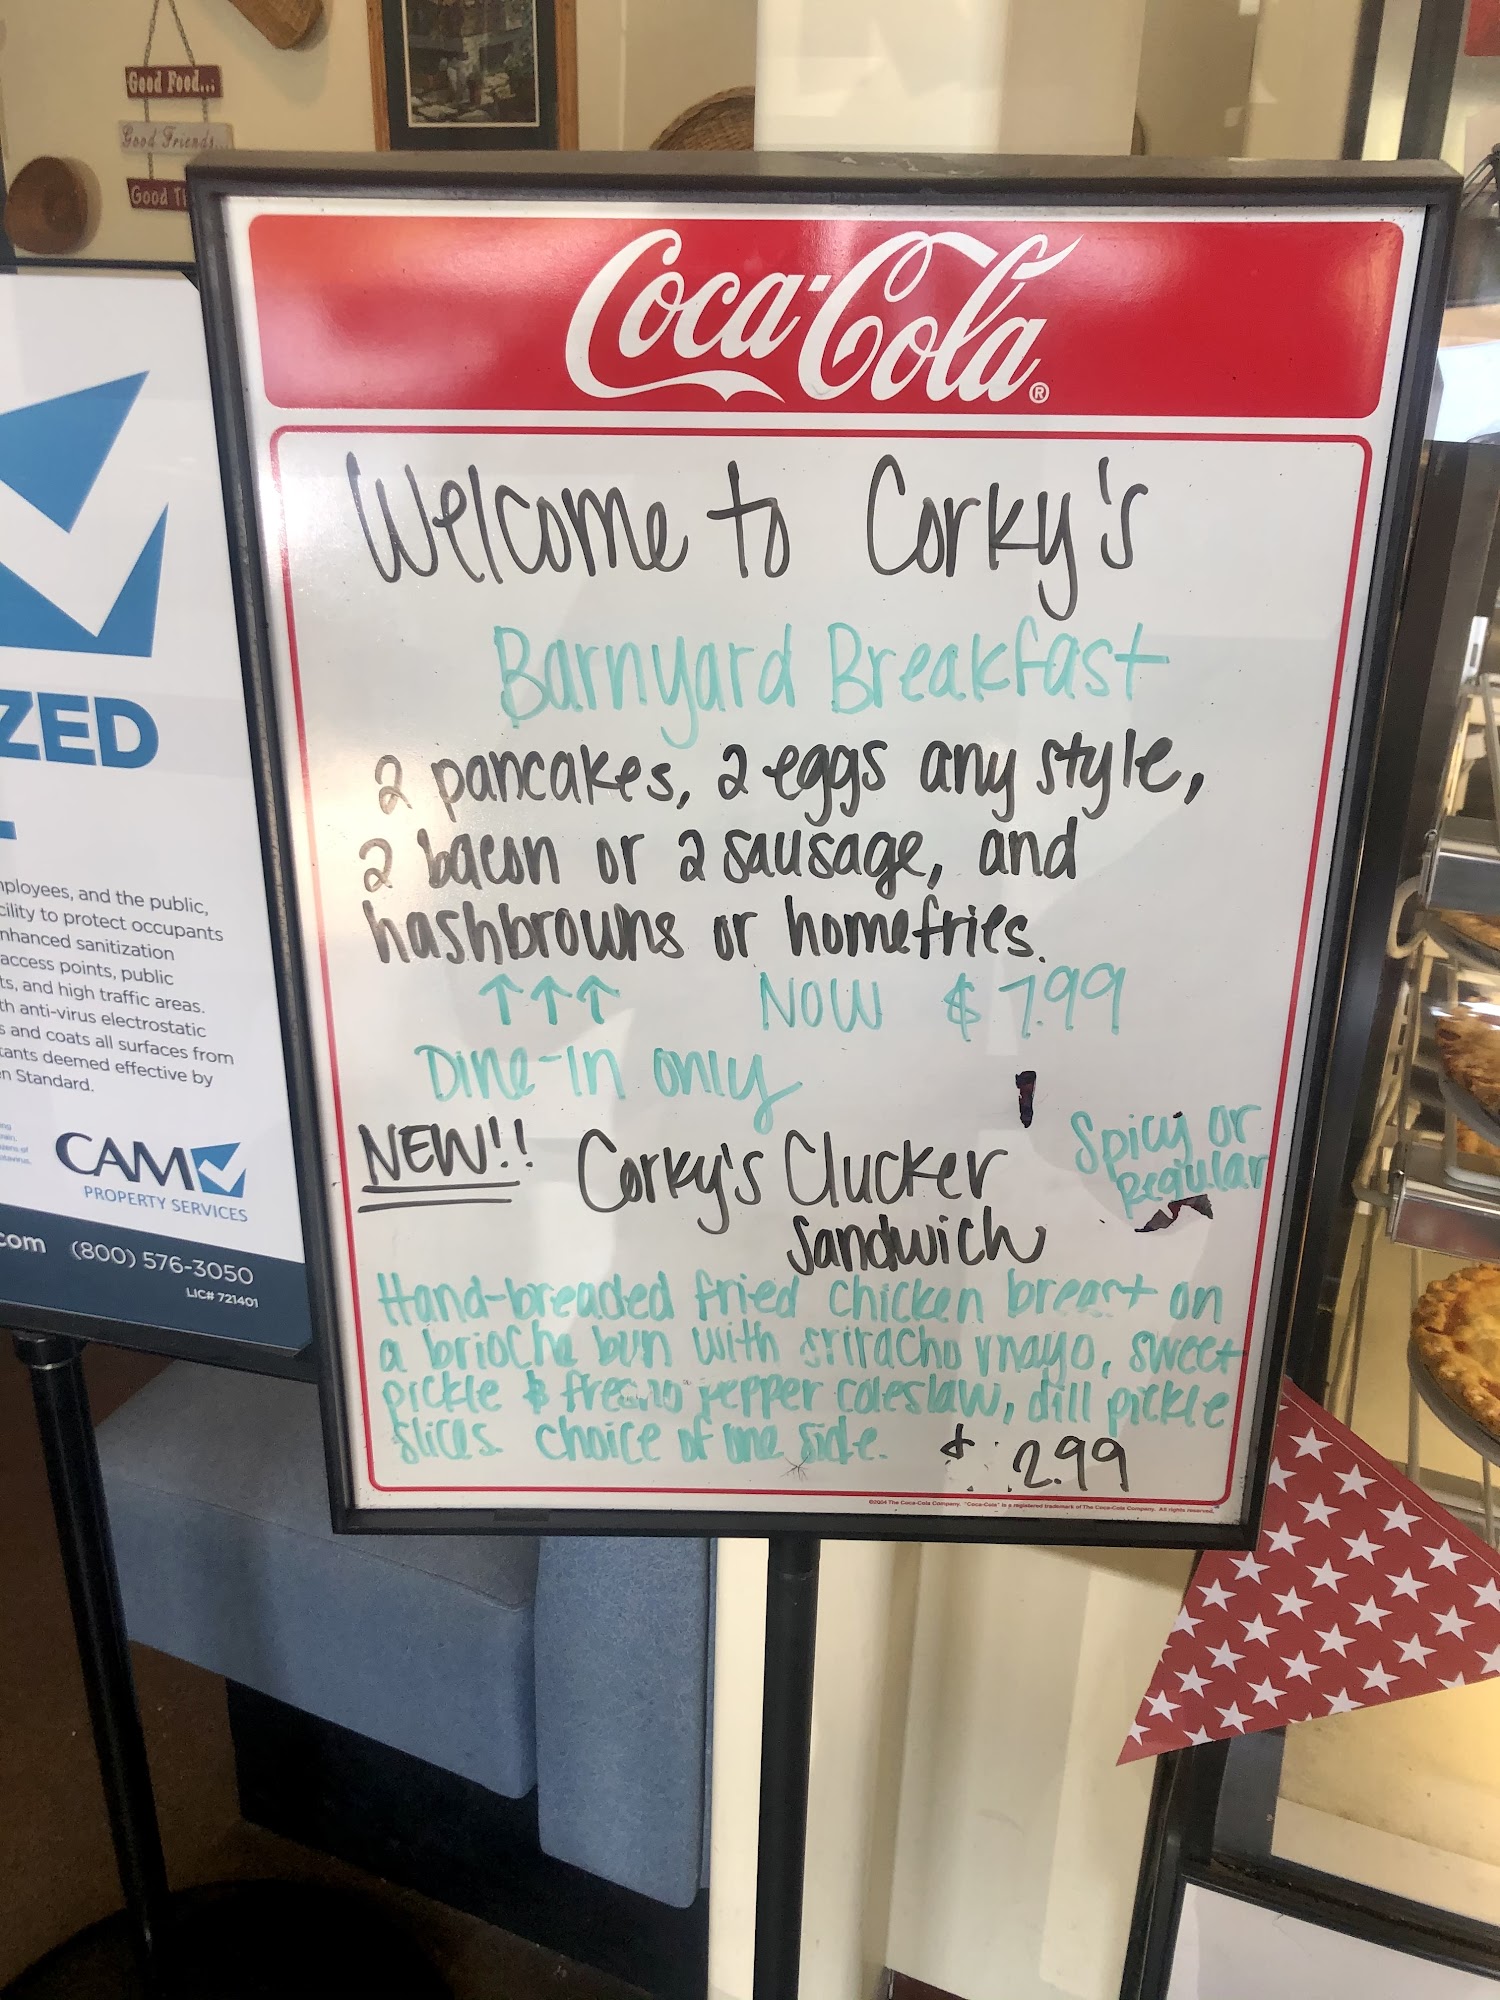 Good Food...
Good Friends...
Good
Coca-Cola®
Welcome to Corky's
Barnyard Breakfast
2 pancakes, 2 eggs any style,
2 bacon or 2 sausage, and
hashbrowns or homefries.
↑↑↑ NOW $7.99
Dine-In only
NEW!! Corky's Clucker
Sandwich
Spicy or
Regular
Hand-breaded fried chicken breast on
a brioche bun with sriracha mayo, sweet
pickle & fresno pepper coleslaw, dill pickle
slices. choice of one side. $ 2.99
©2004 The Coca-Cola Company. "Coca-Cola" is a registered trademark of The Coca-Cola Company. All rights reserved.
ZED
mployees, and the public,
cility to protect occupants
nhanced sanitization
access points, public
ts, and high traffic areas.
th anti-virus electrostatic
s and coats all surfaces from
tants deemed effective by
n Standard.
CAM
PROPERTY SERVICES
.com (800) 576-3050
LIC# 721401